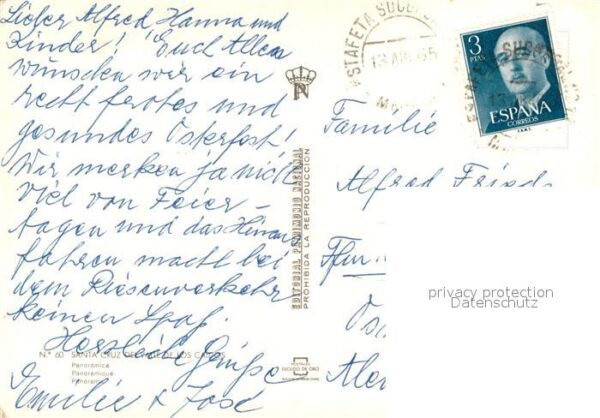 Lieber Alfred Hanna und
Kinder! Euch Allen
wünschen wir ein
recht frohes und
gesundes Osterfest!
Wir merken ja nicht
viel von Feier-
tagen und das Hinaus
fahren macht bei
dem Riesenverkehr
keinen Spaß.
Herzliche Grüße
Emilie + José
Nº 60 SANTA CRUZ DEL VALLE DE LOS CAIDOS
Panorámica
Panoramique
Panorama
EDITORIAL PATRIMONIO NACIONAL
PROHIBIDA LA REPRODUCCION
POSTALES
ESCUDO DE ORO
ESTAFETA SUCURS
13 ABR 65
3
PTAS
ESPAÑA
CORREOS
Familie
Alfred Fried
Ffm
privacy protection
Datenschutz